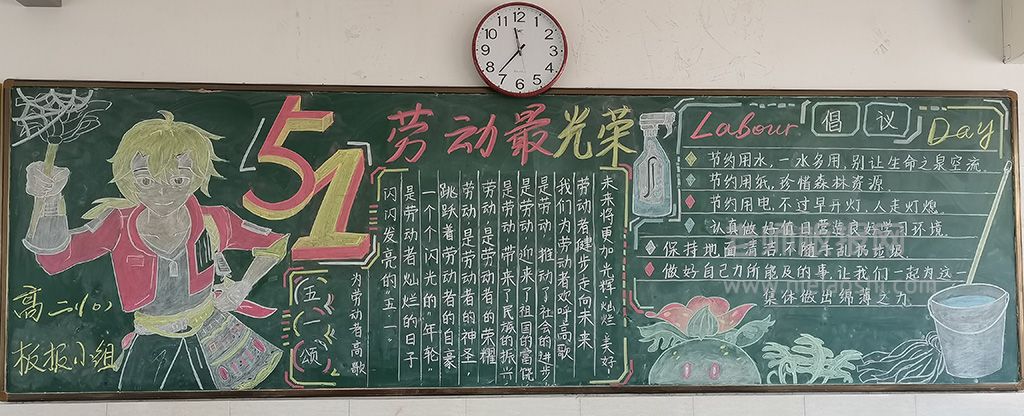 12
1
2
3
4
5
6
7
8
9
10
11
51
劳动最光荣
高二(10)
板报小组
伍一颂
为劳动者高歌
闪闪发亮的“五一”
是劳动者灿烂的日子
一个个闪光的“年轮”
跳跃着劳动者的自豪
劳动 是劳动者的神圣
劳动 是劳动者的荣耀
是劳动 带来了民族的振兴
是劳动 迎来了祖国的富饶
是劳动 推动了社会的进步
我们为劳动者欢呼高歌
劳动者健步走向未来
未来将更加光辉灿烂美好
Labour 倡议 Day
节约用水,一水多用,别让生命之泉空流.
节约用纸,珍惜森林资源.
节约用电,不过早开灯,人走灯熄.
认真做好值日营造良好学习环境
保持地面清洁不随手乱扔垃圾.
做好自己力所能及的事,让我们一起为这一
集体做出绵薄之力